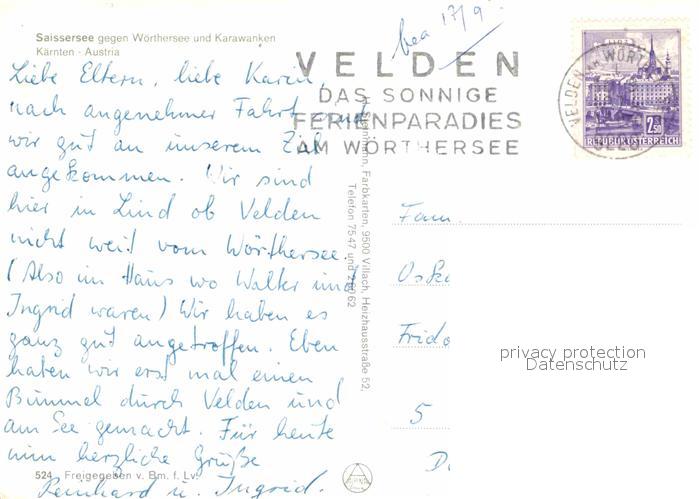 Saissersee gegen Wörthersee und Karawanken
Kärnten - Austria
bea 17/9
VELDEN
DAS SONNIGE
FERIENPARADIES
AM WÖRTHERSEE
VELDEN AM WÖRT
2.50
REPUBLIK ÖSTERREICH
Liebe Eltern, liebe Karin,
nach angenehmer Fahrt sind
wir gut an unserem Ziel
angekommen. Wir sind
hier in Lind ob Velden
nicht weit vom Wörthersee.
(Also im Haus wo Walter und
Ingrid waren) Wir haben es
ganz gut angetroffen. Eben
haben wir erst mal einen
Bummel durch Velden und
am See gemacht. Für heute
nun herzliche Grüße
Reinhard u. Ingrid.
Farbkarten, 9500 Villach, Heizhausstraße 52,
Telefon 7547 und
62
Fam.
Oska
Frido
5
D.
privacy protection
Datenschutz
524 Freigegeben v. Bm. f. Lv.